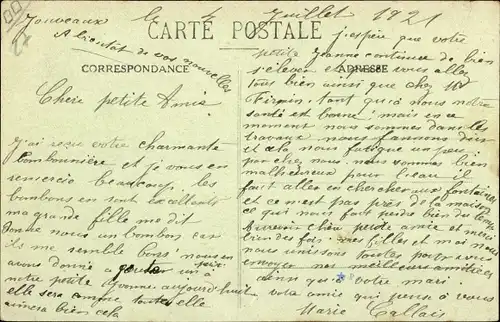 Jouveaux le 4 Juillet 1921
A bientôt de vos nouvelles
CARTE POSTALE
CORRESPONDANCE
ADRESSE
Chère petite Amie
J'ai reçu votre charmante
bonbonnière et je vous en
remercie beaucoup, les
bonbons en sont excellents
ma grande fille me dit
donne nous un bonbon car
ils me semble bons nous en
avons donné a goûter un petit
notre petite Yvonne aujourd'huit
elle sera comme toute elle
aimera bien cela
j'espère que votre
petite Jeanne continue de bien
s'élever et que vous allez
tous bien ainsi que cher Mr
Firmin tant qu'à nous notre
santé est bonne mais en ce
moment nous sommes dans les
travaux nous fannons du
et cela nous fatigue un peu
par chez nous nous sommes bien
malheureux pour l'eau il
faut aller en chercher aux fontaines
et ce n'est pas près de la maison
ce qui nous fait perdre bien du temps
chère petite amie et merci
bien des fois mes filles et moi nous
nous unissons toutes pour vous
envoyer nos meilleures amitiées
ainsi que votre mari
votre amie qui pense à vous
Marie Callais